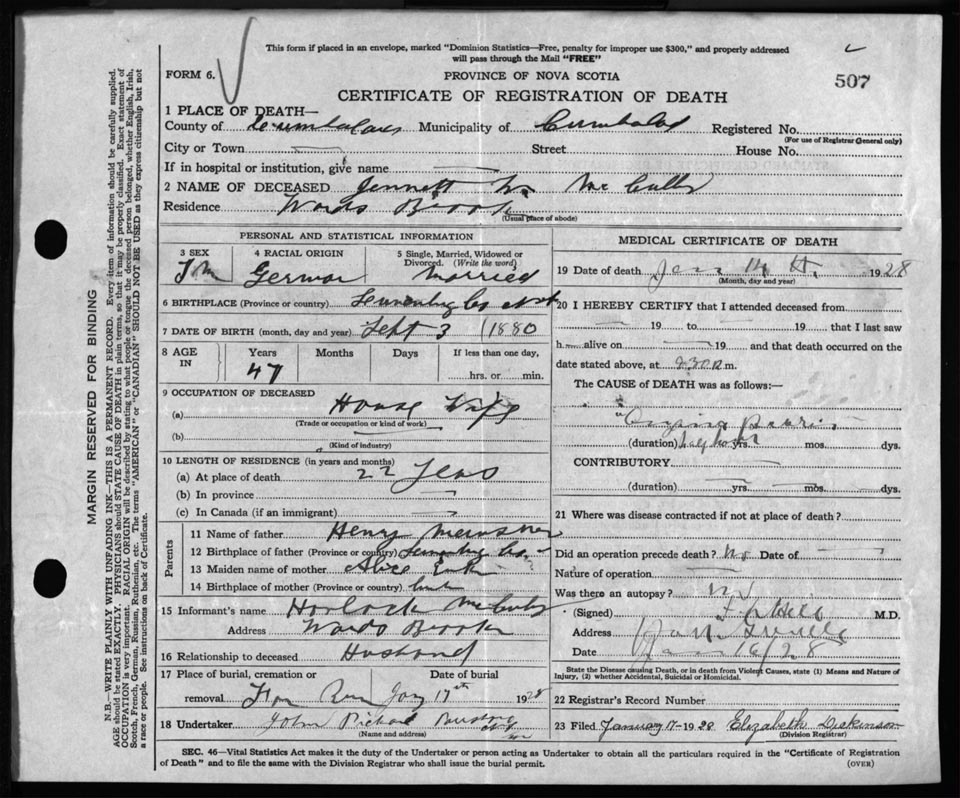 This form if placed in an envelope, marked "Dominion Statistics—Free, penalty for improper use $300," and properly addressed
will pass through the Mail "FREE"
FORM 6.
PROVINCE OF NOVA SCOTIA
507
CERTIFICATE OF REGISTRATION OF DEATH
1 PLACE OF DEATH—
County of Municipality of Registered No.
(For use of Registrar General only)
City or Town Street House No.
If in hospital or institution, give name
2 NAME OF DECEASED Jennett Mc
Residence Wards Brook
(Usual place of abode)
PERSONAL AND STATISTICAL INFORMATION
3 SEX 4 RACIAL ORIGIN 5 Single, Married, Widowed or
Divorced. (Write the word)
German Married
6 BIRTHPLACE (Province or country)
7 DATE OF BIRTH (month, day and year) Sept 3 1880
8 AGE IN Years Months Days If less than one day,
47 hrs. or min.
9 OCCUPATION OF DECEASED
(a) House Wife
(Trade or occupation or kind of work)
(b)
(Kind of industry)
10 LENGTH OF RESIDENCE (in years and months)
(a) At place of death 22 Years
(b) In province
(c) In Canada (if an immigrant)
Parents
11 Name of father Henry
12 Birthplace of father (Province or country)
13 Maiden name of mother Alice
14 Birthplace of mother (Province or country)
15 Informant's name
Address Wards Brook
16 Relationship to deceased Husband
17 Place of burial, cremation or Date of burial
removal 17th 1928
18 Undertaker John
(Name and address)
MEDICAL CERTIFICATE OF DEATH
19 Date of death 14 1928
(Month, day and year)
20 I HEREBY CERTIFY that I attended deceased from
19 to 19 that I last saw
h alive on 19 and that death occurred on the
date stated above, at 2 30 m.
The CAUSE of DEATH was as follows:—
Angina
(duration) yrs. mos. dys.
CONTRIBUTORY
(duration) yrs. mos. dys.
21 Where was disease contracted if not at place of death?
Did an operation precede death? No Date of
Nature of operation
Was there an autopsy?
(Signed) M.D.
Address
Date Jan 16/28
State the Disease causing Death, or in death from Violent Causes, state (1) Means and Nature of
Injury, (2) whether Accidental, Suicidal or Homicidal.
22 Registrar's Record Number
23 Filed January 17-1928 Elizabeth Dickinson
(Division Registrar)
SEC. 46—Vital Statistics Act makes it the duty of the Undertaker or person acting as Undertaker to obtain all the particulars required in the "Certificate of Registration
of Death" and to file the same with the Division Registrar who shall issue the burial permit. (OVER)
MARGIN RESERVED FOR BINDING
N.B.—WRITE PLAINLY WITH UNFADING INK—THIS IS A PERMANENT RECORD. Every item of information should be carefully supplied.
AGE should be stated EXACTLY. PHYSICIANS should STATE CAUSE OF DEATH in plain terms, so that it may be properly classified. Exact statement of
OCCUPATION is very important. RACIAL ORIGIN will be described by stating to what people or tongue the deceased person belonged, whether English, Irish,
Scotch, French, German, Russian, Ruthenian, etc. The terms "AMERICAN" or "CANADIAN" SHOULD NOT BE USED as they express citizenship but not
a race or people. See instructions on back of Certificate.